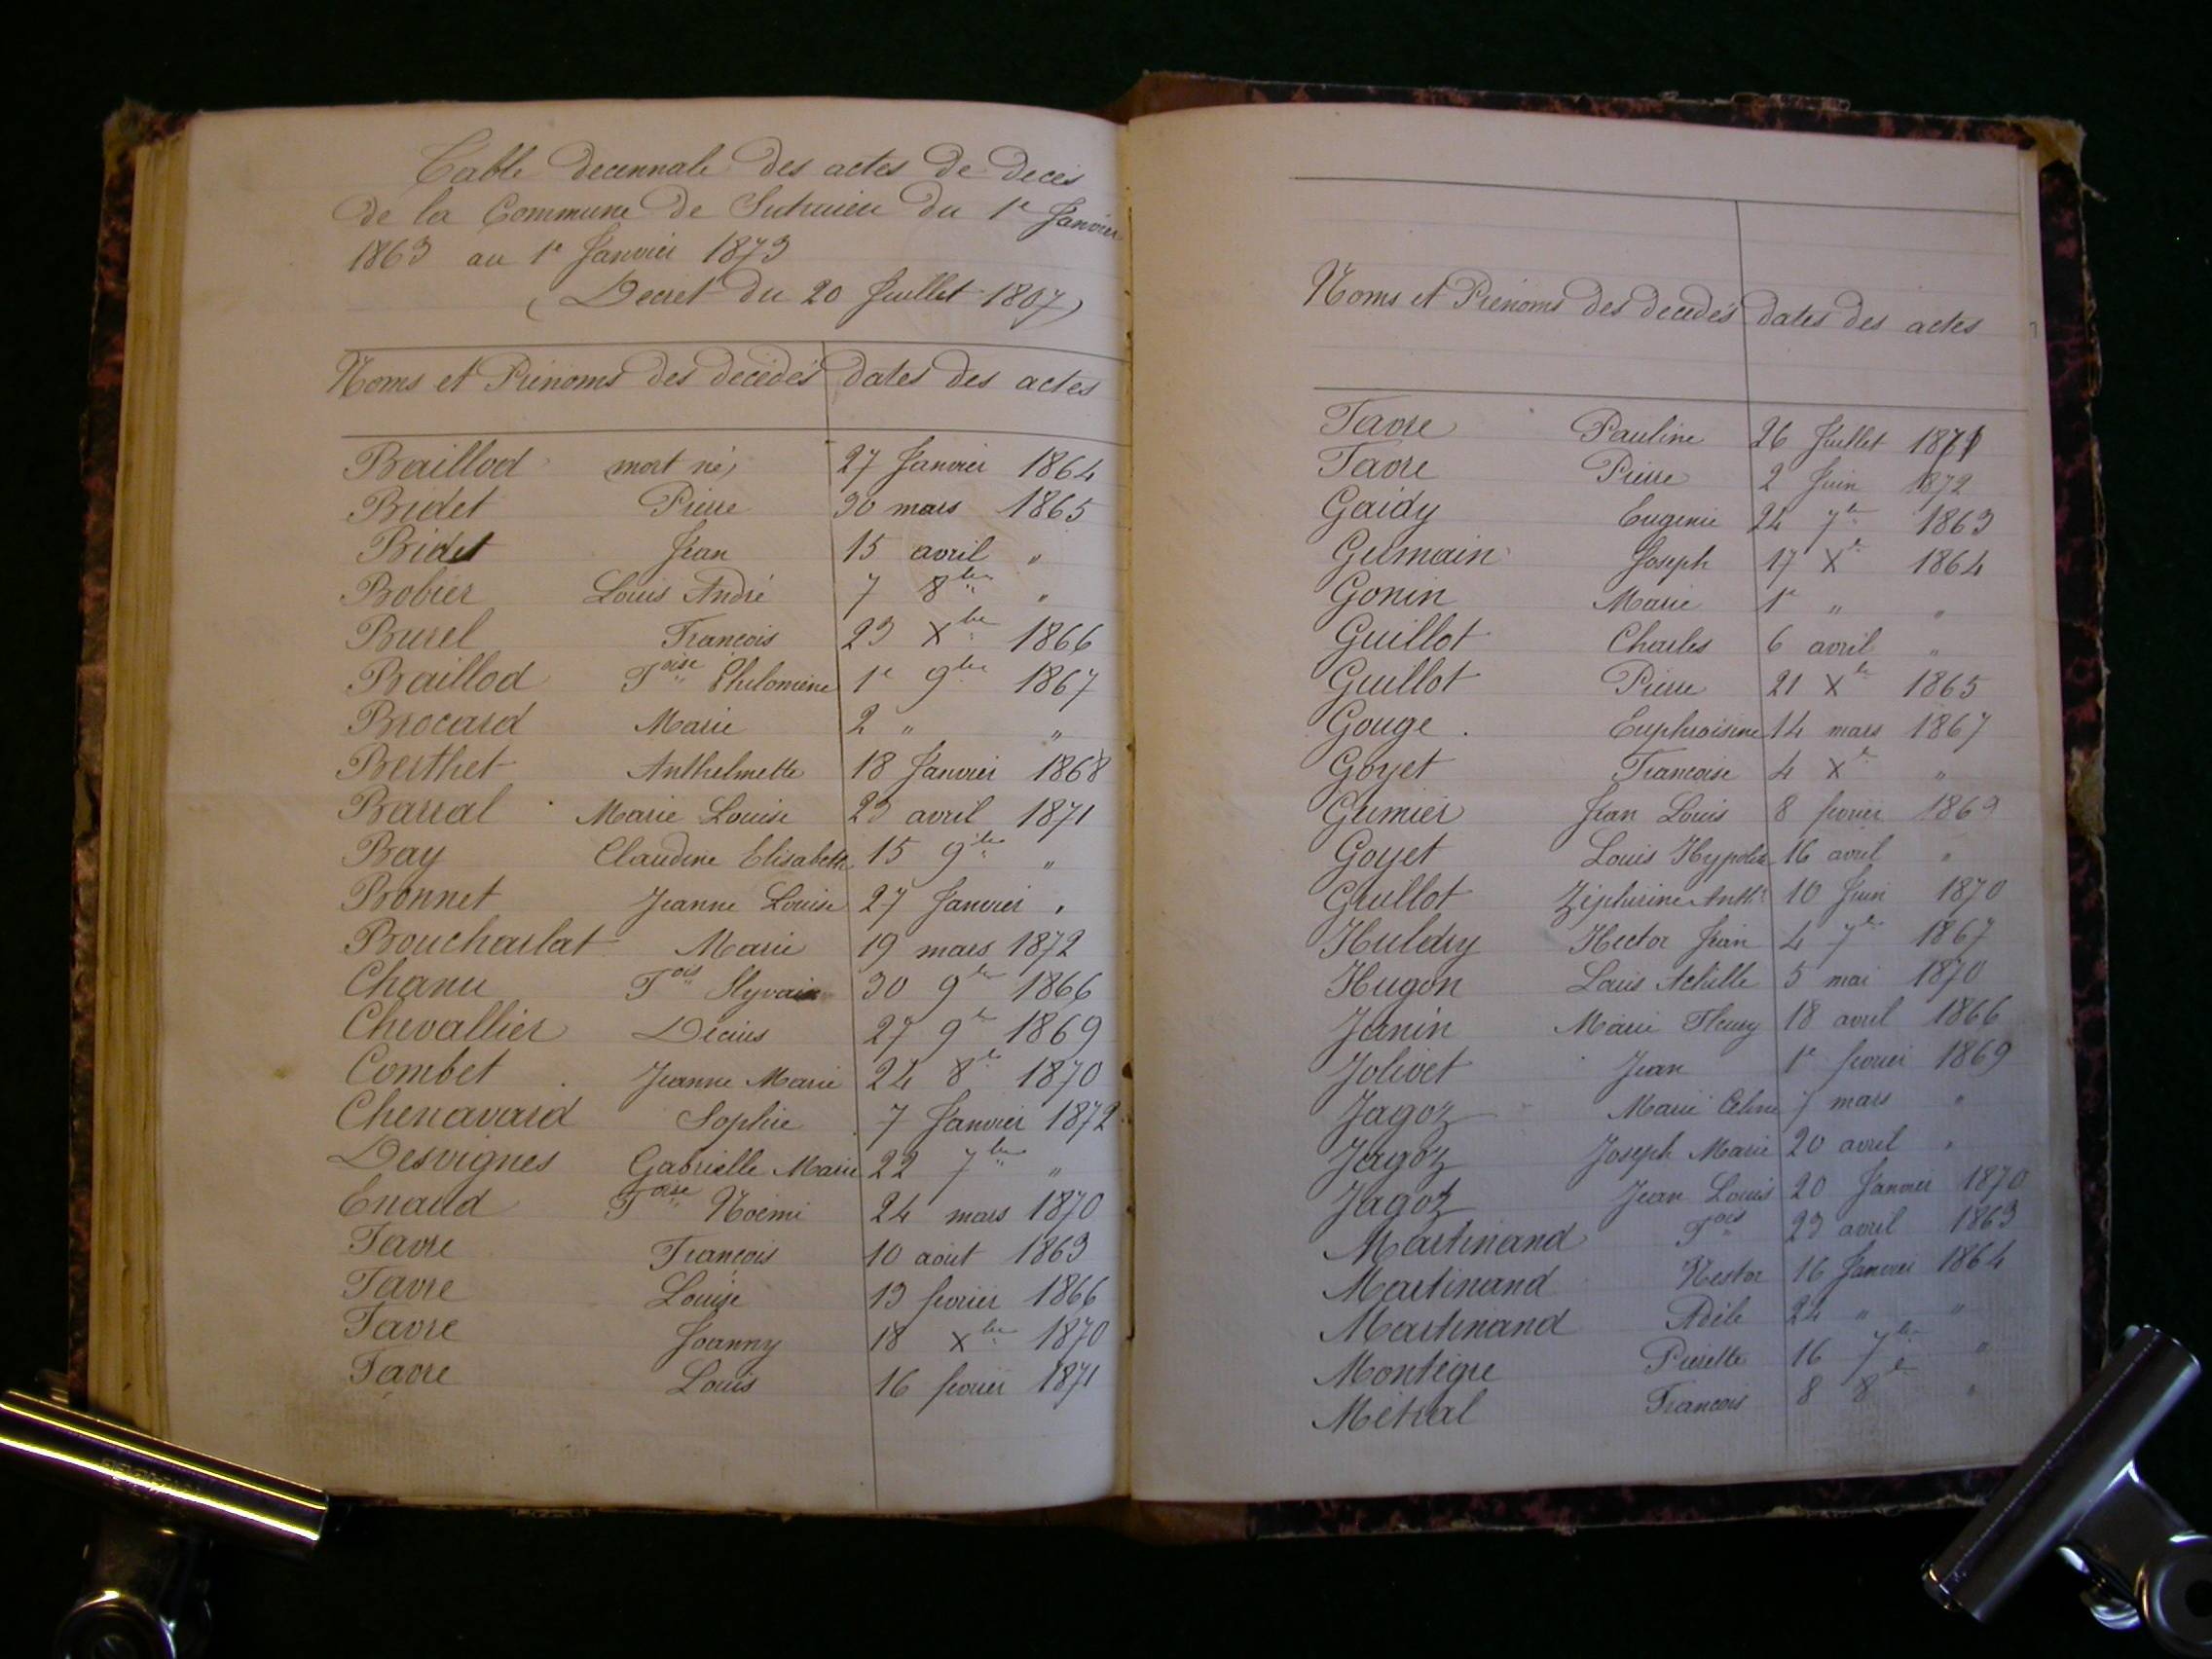 Table decennale des actes de decès
de la Commune de Sutrieu du 1e Janvier
1863 au 1e Janvier 1873
(Decret du 20 Juillet 1807)
Noms et Prénoms des décédés dates des actes
Baillod mort né 27 Janvier 1864
Bidet Pierre 30 mars 1865
Bidet Jean 15 avril "
Bobier Louis André 7 8bre "
Burel Francois 23 Xbre 1866
Baillod Foise Philomène 1e 9bre 1867
Brocard Marie 2 " "
Berthet Anthelmette 18 Janvier 1868
Barral Marie Louise 23 avril 1871
Bay Claudine Elisabeth 15 9bre "
Bonnet Jeanne Louise 27 Janvier "
Boucharlat Marie 19 mars 1872
Chanu Fois Sylvain 30 9bre 1866
Chevallier Décius 27 9bre 1869
Combet Jeanne Marie 24 8bre 1870
Chenavard Sophie 7 Janvier 1872
Desvignes Gabrielle Marie 22 7bre "
Enaud Foise Noémi 24 mars 1870
Favre Francois 10 août 1863
Favre Louise 13 fevrier 1866
Favre Joanny 18 Xbre 1870
Favre Louis 16 fevrier 1871
Noms et Prénoms des décédés dates des actes
Favre Pauline 26 Juillet 1871
Favre Pierre 2 Juin 1872
Gaidy Eugenie 24 7bre 1863
Germain Joseph 17 Xe 1864
Gonin Marie 1e " "
Guillot Charles 6 avril "
Guillot Pierre 21 Xbre 1865
Gouge Euphroisine 14 mars 1867
Goyet Francoise 4 Xe "
Gumier Jean Louis 8 fevrier 1869
Goyet Louis Hypolite 16 avril "
Guillot Ziphirine Anthe 10 Juin 1870
Huldry Hector Jean 4 7bre 1867
Hugon Louis Achille 5 mai 1870
Janin Marie Fleury 18 avril 1866
Jolivet Jean 1e fevrier 1869
Jagoz Marie Celine 7 mars "
Jagoz Joseph Marie 20 avril "
Jagoz Jean Louis 20 Janvier 1870
Martinand Fois 23 avril 1863
Martinand Nestor 16 Janvier 1864
Martinand Adèle 24 " "
Montègre Pierette 16 7bre "
Métral Francois 8 8e "